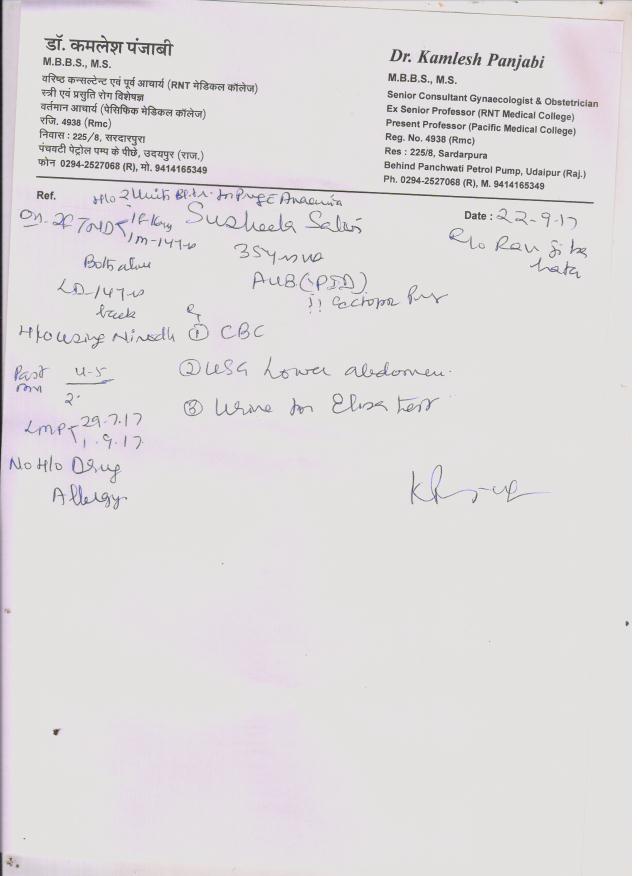 डॉ. कमलेश पंजाबी
M.B.B.S., M.S.
वरिष्ठ कन्सल्टेन्ट एवं पूर्व आचार्य (RNT मेडिकल कॉलेज)
स्त्री एवं प्रसुति रोग विशेषज्ञ
वर्तमान आचार्य (पेसिफिक मेडिकल कॉलेज)
रजि. 4938 (Rmc)
निवास : 225/8, सरदारपुरा
पंचवटी पेट्रोल पम्प के पीछे, उदयपुर (राज.)
फोन 0294-2527068 (R), मो. 9414165349
Dr. Kamlesh Panjabi
M.B.B.S., M.S.
Senior Consultant Gynaecologist & Obstetrician
Ex Senior Professor (RNT Medical College)
Present Professor (Pacific Medical College)
Reg. No. 4938 (Rmc)
Res : 225/8, Sardarpura
Behind Panchwati Petrol Pump, Udaipur (Raj.)
Ph. 0294-2527068 (R), M. 9414165349
Ref. H/o 2 Units Bl.tr. in Preg c Anaemia
Susheela Salvi
Date : 22-9-17
R/o
35 years
Both alive
AUB (?PID)
LD-14 yrs
back
H/o using Nirodh
① CBC
Past
4-5
② USG Lower abdomen.
③ Urine for Elisa test
LMP 29.7.17
1.9.17
No H/o Drug
Allergy